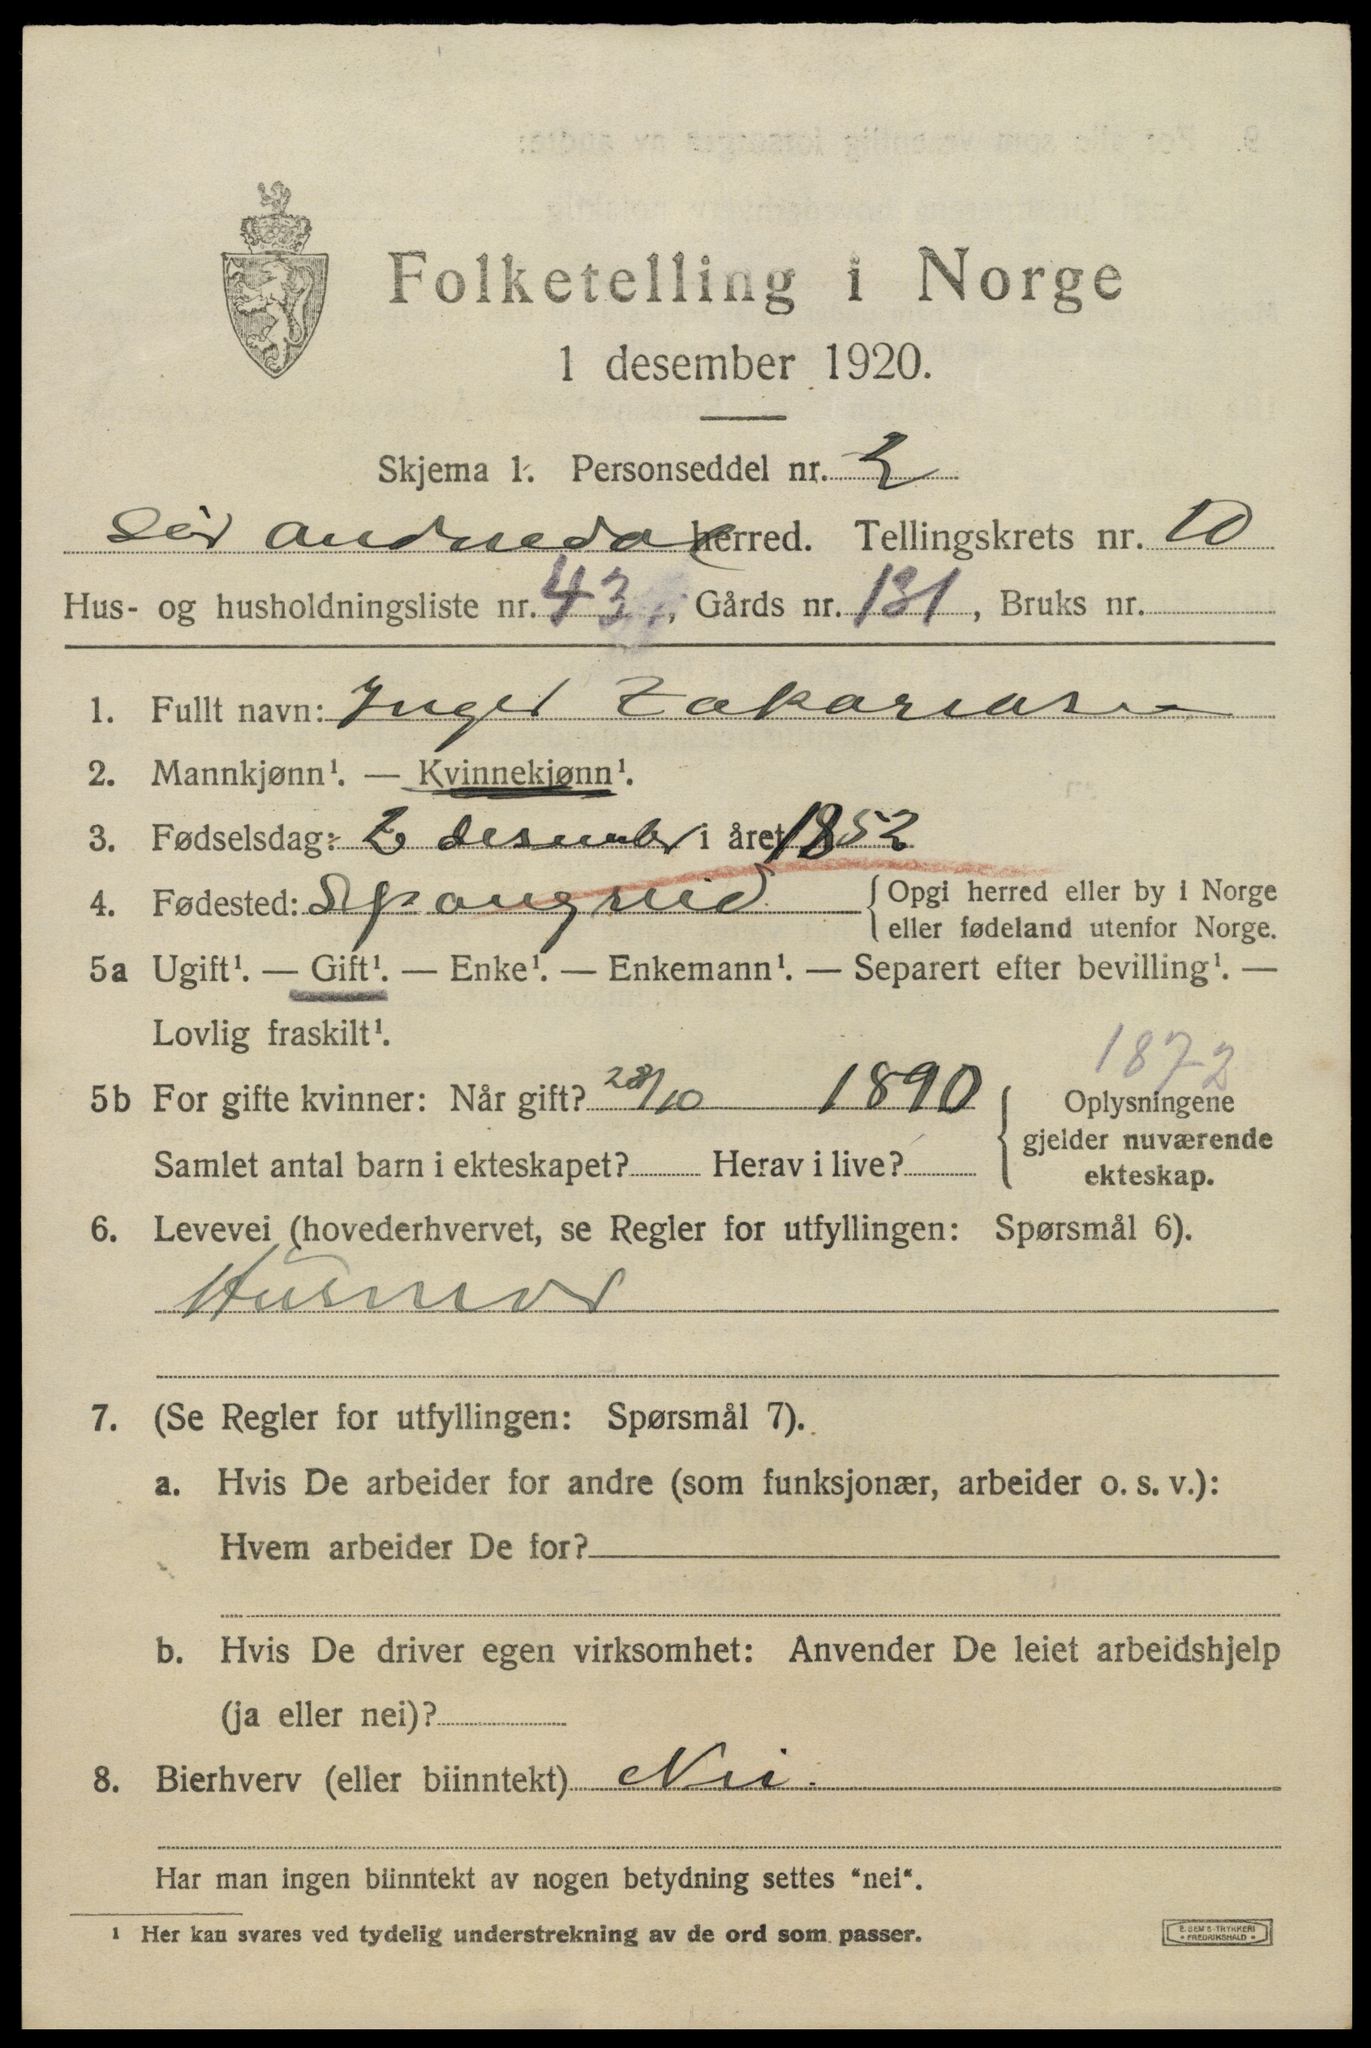 Folketelling i Norge
1 desember 1920.
Skjema 1. Personseddel nr. 2
Sør Audnedal herred. Tellingskrets nr. 10
Hus- og husholdningsliste nr. 43, Gårds nr. 131, Bruks nr.
1. Fullt navn: Inger Zakariasen
2. Mannkjønn¹. — Kvinnekjønn¹.
3. Fødselsdag: 2 desember i året 1852
4. Fødested: Spangreid {Opgi herred eller by i Norge
eller fødeland utenfor Norge.
5a Ugift¹. — Gift¹. — Enke¹. — Enkemann¹. — Separert efter bevilling¹. —
Lovlig fraskilt¹.
1872
5b For gifte kvinner: Når gift? 28/10 1890 Oplysningene
gjelder nuværende
Samlet antal barn i ekteskapet? Herav i live? ekteskap.
6. Levevei (hovederhvervet, se Regler for utfyllingen: Spørsmål 6).
Husmor
7. (Se Regler for utfyllingen: Spørsmål 7).
a. Hvis De arbeider for andre (som funksjonær, arbeider o. s. v.):
Hvem arbeider De for?
b. Hvis De driver egen virksomhet: Anvender De leiet arbeidshjelp
(ja eller nei)?
8. Bierhverv (eller biinntekt) Nei.
Har man ingen biinntekt av nogen betydning settes "nei".
¹ Her kan svares ved tydelig understrekning av de ord som passer.
E. SEM'S TRYKKERI
FREDRIKSHALD